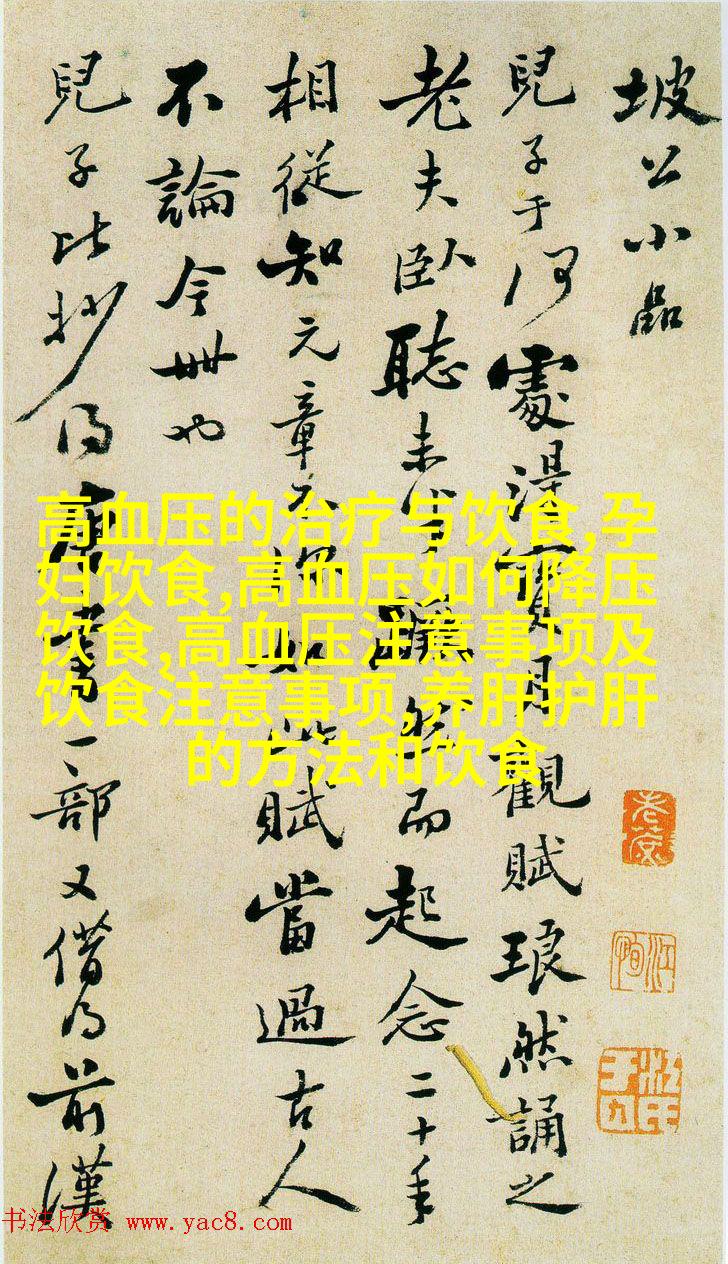 坡公小品
兒子于何處得寶月觀賦琅然誦之
老夫臥聽未半躍然而起念二十年
相從知元章不如此賦當過古人
不論今世也
兒子比抄得唐書一部又借得前漢
高血压的治疗与饮食,孕
妇饮食,高血压如何降压
饮食,高血压注意事项及
饮食注意事项,养肝护肝
的方法和饮食
书法欣赏 www.yac8.com